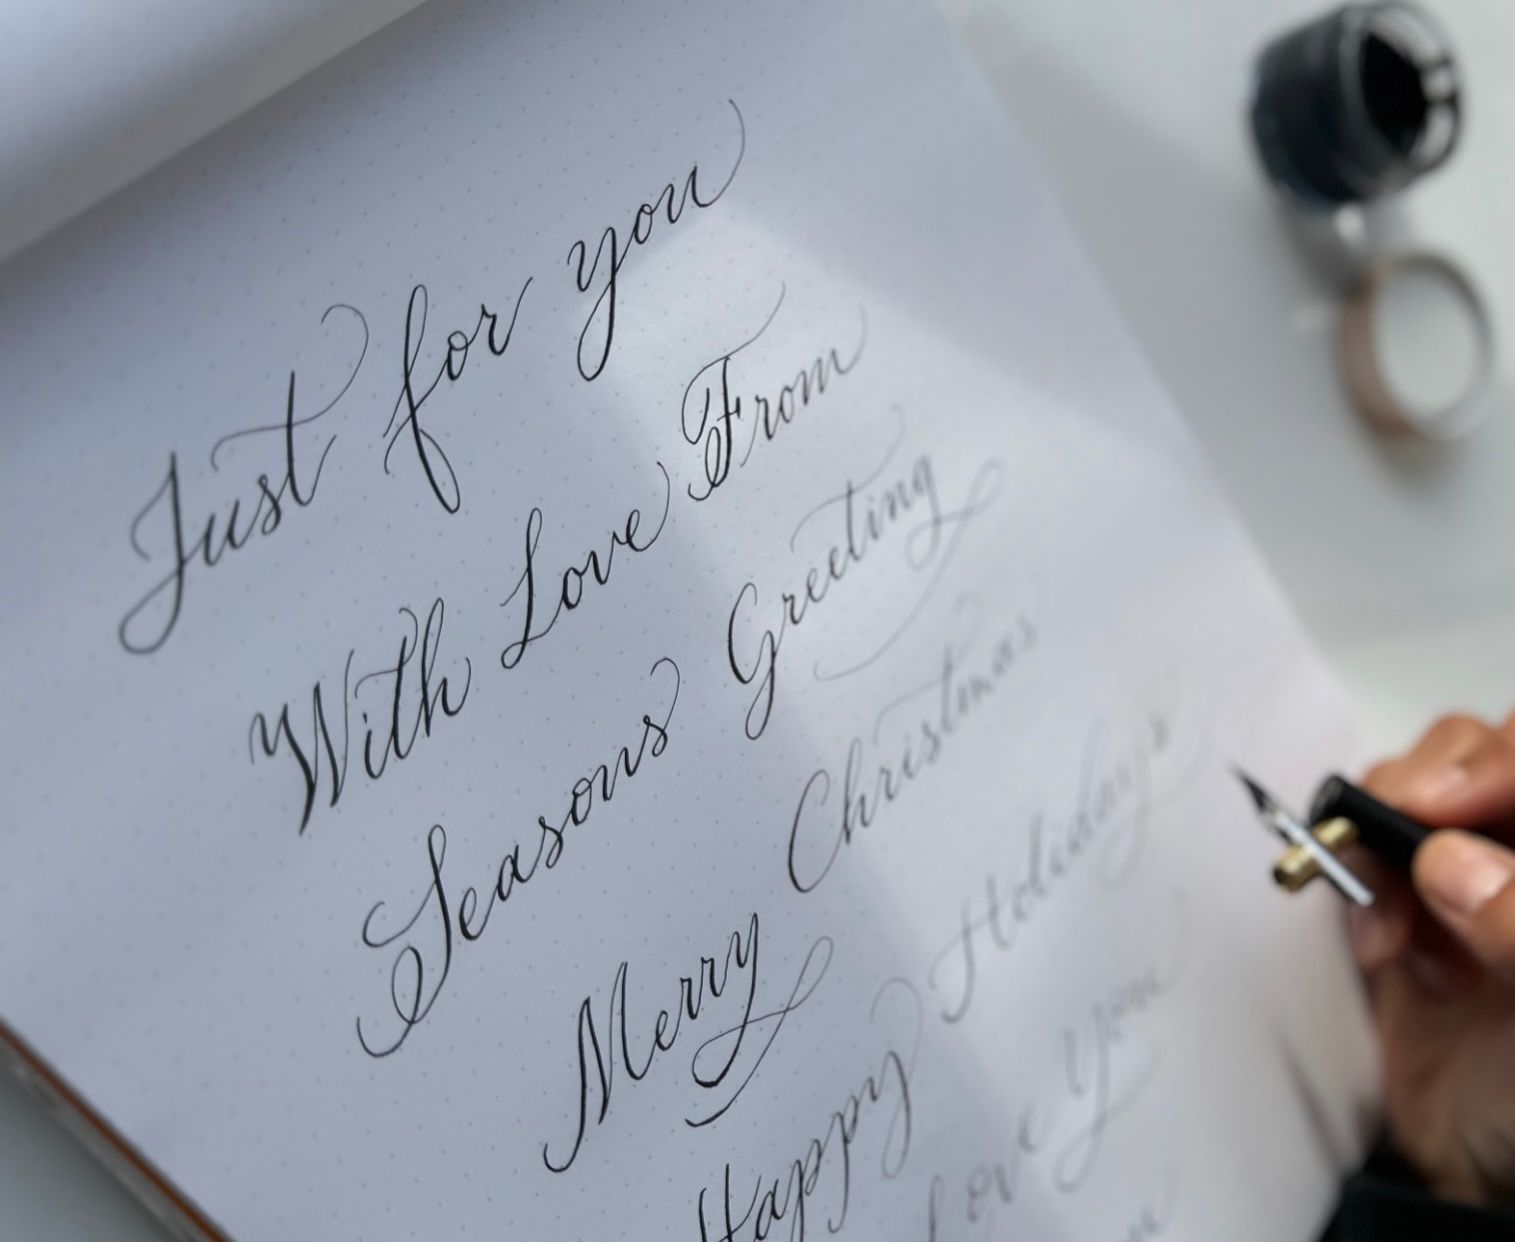 Just for you
With Love From
Seasons Greeting
Merry Christmas
Happy Holidays
Love you